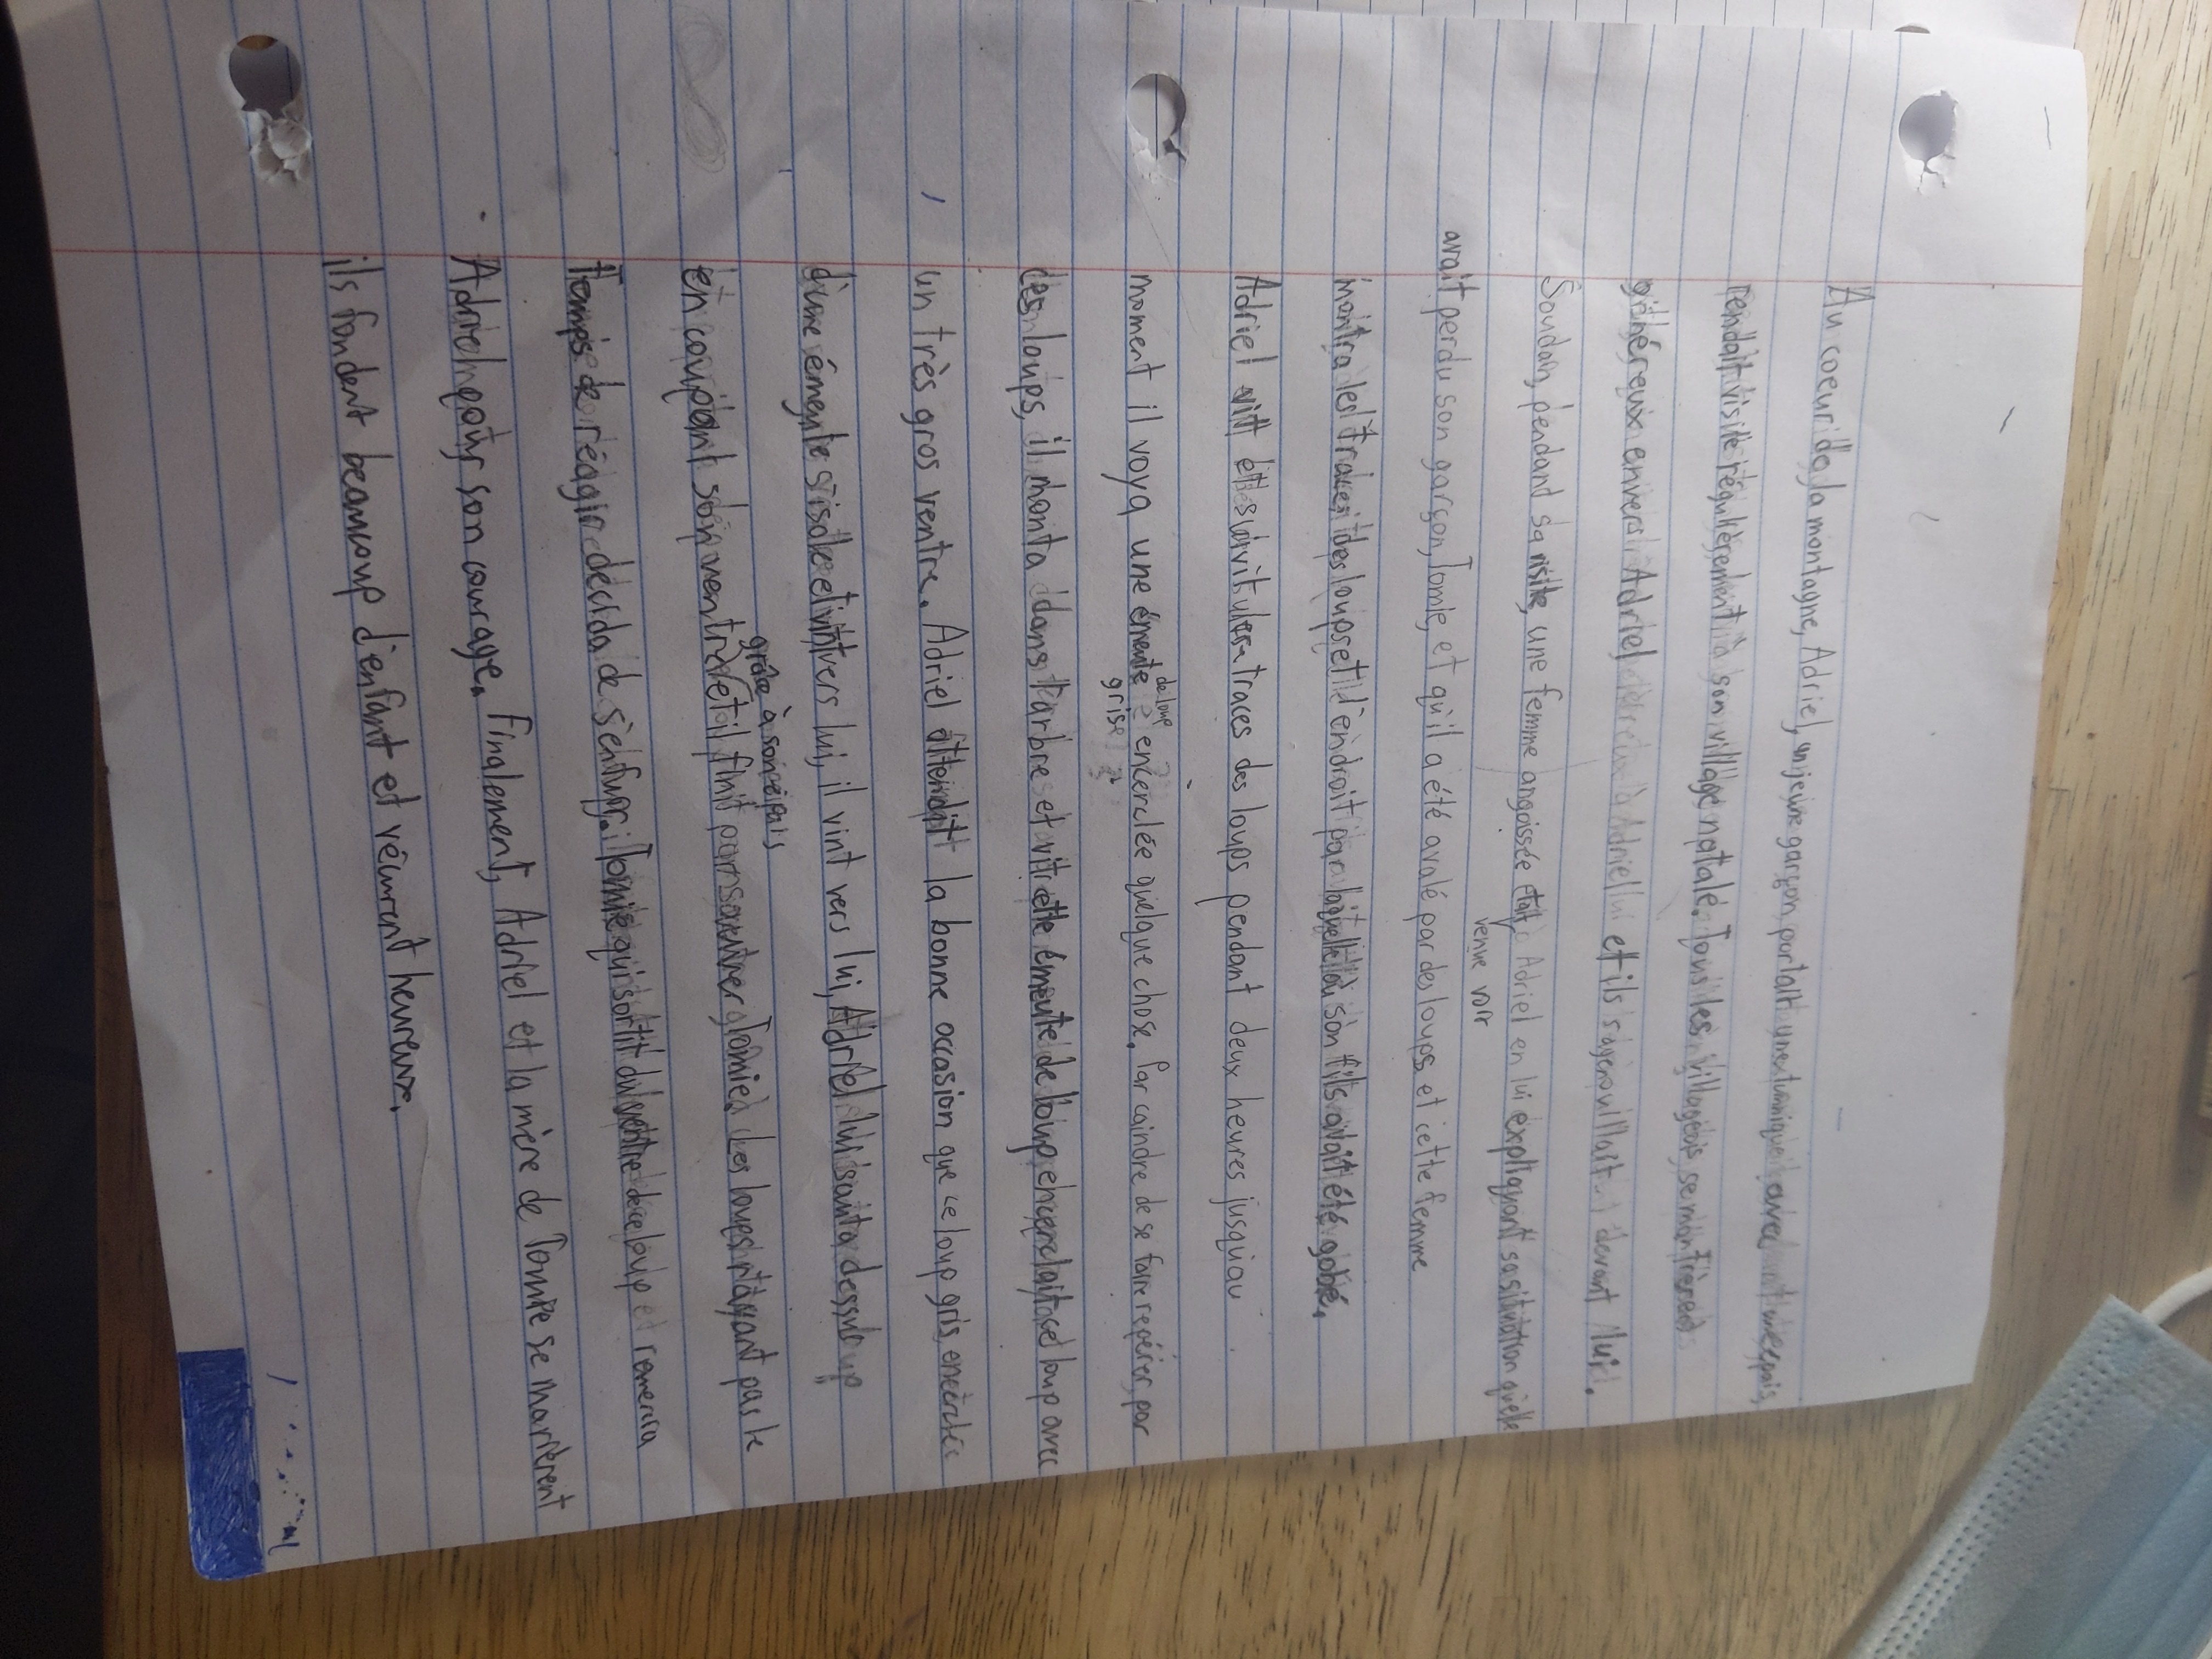 Au coeur de la montagne, Adriel, un jeune garçon, portait une tunique avec une épis,
rendait visite régulièrement à son village natale. Tous les villageois se montrèrent
généreux envers Adriel et ils s'agenouillait devant lui.
Soudan, pendant sa visite, une femme angoissée était
venue voir
Adriel en lui expliquant sa situation qu'elle
avait perdu son garçon, Tomie, et qu'il a été avalé par des loups et cette femme
montra les traces des loups et l'endroit par son fils avait été gobé.
Adriel suivit les traces des loups pendant deux heures jusqu'au
moment il voya une émeute
de loup
grise
encerclée quelque chose. Par caindre de se faire repérier, par
des loups, il monta dans l'arbre et vit cette émeute de loup encerclait ce loup avec
un très gros ventre. Adriel attendait la bonne occasion que ce loup gris, encerclés
d'une émeute s'isole et vint vers lui, il vint vers lui, Adriel lui sauta dessus
en coupant son ventre
grâce à son épis
et il finit par sauver Tomie. Les loups n'ayant pas le
temps de réagir décida de s'enfuir. Tomie qui sortit du ventre de ce loup et remercia
Adriel pour son courage. Finalement, Adriel et la mère de Tomie se marièrent
ils fondent beaucoup d'enfant et vécurent heureux.